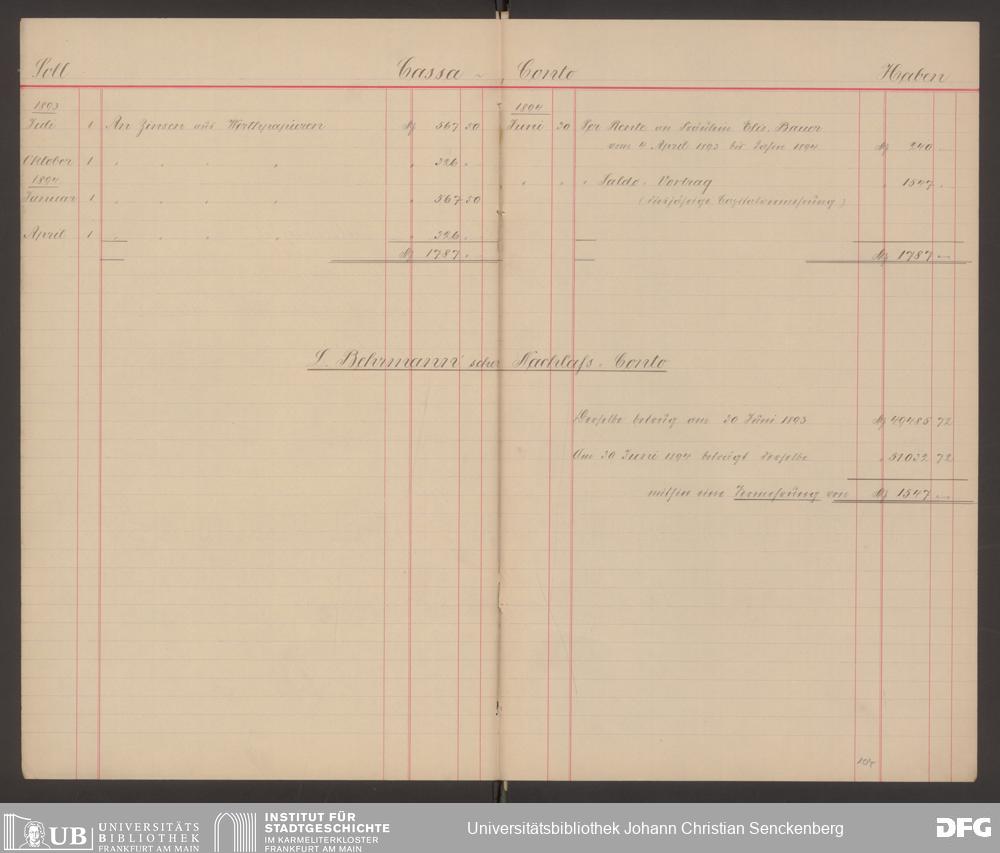 Soll Cassa - Conto Haben
1893
Juli 1 An Zinsen aus Werthpapieren M 567 50
Oktober 1 " " " " " 326 "
1894
Januar 1 " " " " " 567 50
April 1 " " " " " 326 "
M 1787 "
1894
Juni 30 Per Rente an Fräulein Elis. Bauer
vom 4 April 1893 bis dahin 1894 M 240 —
" " " Saldo-Vortrag " 1547 —
(diesjährige Capitalvermehrung)
M 1787 —
S. Behrmann'scher Nachlaß-Conto
Derselbe betrug am 30 Juni 1893 M 49485 72
Am 30 Juni 1894 beträgt derselbe " 51032 72
mithin eine Vermehrung von M 1547 —
UB UNIVERSITÄTS
BIBLIOTHEK
FRANKFURT AM MAIN
INSTITUT FÜR
STADTGESCHICHTE
IM KARMELITERKLOSTER
FRANKFURT AM MAIN
Universitätsbibliothek Johann Christian Senckenberg
DFG